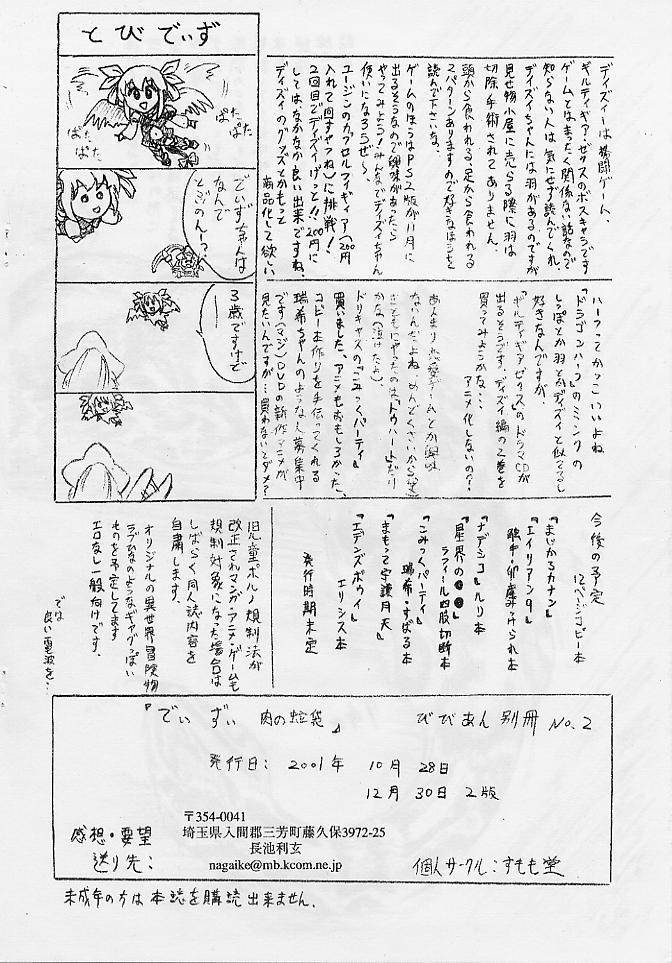 とびでぃず
ぱた
ぱた
ぱた
ぱた
でぃずちゃんは
なんで
とぶのんーっ?
3歳ですけど
ディズィーは格闘ゲーム、
ギルティギア・ゼクスのボスキャラです
ゲームとはまったく関係ない話なので
知らない人は気にせず読んでくれ
ディズィちゃんには羽があるのですが
見せ物小屋に売らる際に羽は
切除手術されてありません。
頭から食われる、足から食われる
2パターンありますので好きなほうを
読んで下さいな。
ゲームのほうはPS2版が11月に
出るそうなので興味があったら
やってみよう!みんなでディズィちゃん
使いになろうぜ〜
ユージンのカプセルフィギュア(200円
入れて回すやつね)に挑戦!
2回目でディズィげっと!!200円に
してはなかなか良い出来ですね。
ディズィのグッズとかもっと
商品化して欲しい。
ハーフってかっこいいよね
『ドラゴンハーフ』のミンクの
しっぽとか羽とかディズィと似てるし
好きなんですが、
『ギルティギアゼクス』のドラマCDが
出るそうです。ディズィ編の2巻を
買ってみようかな…
アニメ化しないの??
あんまり恋愛ゲームとか興味
ないんだよね、めんどくさいから(笑)
まともにやったのはトゥハートだけ
かな(泣けたよ)
ドリキャスの『こみっくパーティ』
買いました、アニメもおもしろかった。
コピー本作りを手伝ってくれる
瑞希ちゃんのような人募集中
です(マジ)DVDの新作アニメが
見たいんですが…買わないとダメ?
今後の予定
12ページコピー本
『まじかるカナン』
『エイリアン9』
卵産みつけられ本
『ナデシコ』ルリ本
『星界の●●』
ラフィール四肢切断本
『こみっくパーティ』
瑞希・すばる本
『まもって守護月天』
『エデンズボゥイ』
エリシス本
発行時期未定
児童ポルノ規制法が
改正されマンガ・アニメ・ゲームも
規制対象になった場合は
しばらく同人誌内容を
自粛します。
オリジナルの異世界冒険物
ラブひなのようなギャグっぽい
ものを予定してます
エロなし一般向けです。
では
良い電波を…
『でぃずぃ 肉の蛭袋』 びびあん別冊 No.2
発行日: 2001年 10月 28日
12月 30日 2版
〒354-0041
埼玉県入間郡三芳町藤久保3972-25
長池利玄
感想・要望
送り先:
nagaike@mb.kcom.ne.jp
個人サークル:すもも堂
未成年の方は本誌を購読出来ません.